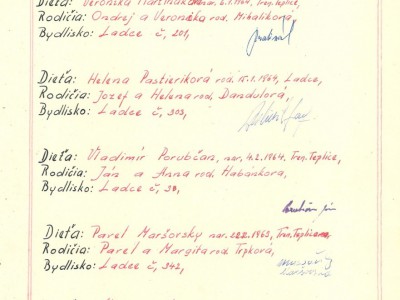 Dieťa: Veronika nar. 6.1.1964, Tren. Teplice,
Rodičia: Ondrej a Veronika rod. Mihalíková,
Bydlisko: Ladce č, 201,
Dieťa: Helena Pastieriková rod. 15.1.1964, Ladce,
Rodičia: Jozef a Helena rod. Dandulová,
Bydlisko: Ladce č, 303,
Dieťa: Vladimír Porubčan, nar. 4.2.1964. Tren. Teplice,
Rodičia: Ján a Anna rod. Habánkova,
Bydlisko: Ladce č, 38,
Dieťa: Pavel Maršovsky nar. 1963, Tren. Teplice
Rodičia: Pavel a Margita rod. Trpková,
Bydlisko: Ladce č, 342,